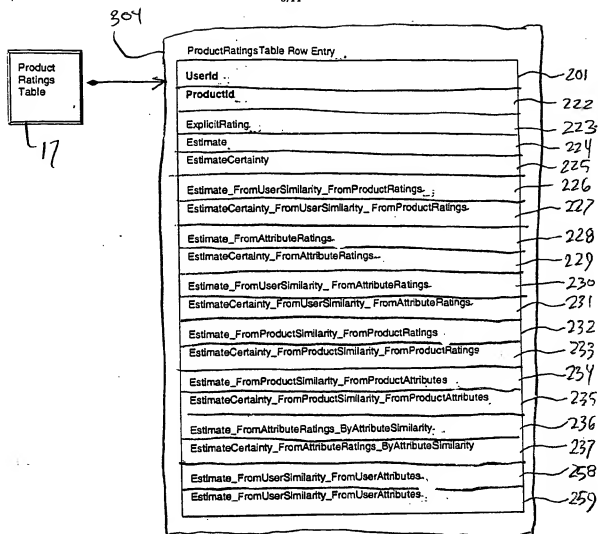 304
ProductRatingsTable Row Entry
Product
Ratings
Table
17
UserId
201
ProductId
222
ExplicitRating
223
Estimate
224
EstimateCertainty
225
Estimate_FromUserSimilarity_FromProductRatings
226
EstimateCertainty_FromUserSimilarity_ FromProductRatings
227
Estimate_FromAttributeRatings
228
EstimateCertainty_FromAttributeRatings
229
Estimate_FromUserSimilarity_ FromAttributeRatings
230
EstimateCertainty_FromUserSimilarity_ FromAttributeRatings
231
Estimate_FromProductSimilarity_FromProductRatings
232
EstimateCertainty_FromProductSimilarity_FromProductRatings
233
Estimate_FromProductSimilarity_FromProductAttributes
234
EstimateCertainty_FromProductSimilarity_FromProductAttributes
235
Estimate_FromAttributeRatings_ByAttributeSimilarity
236
EstimateCertainty_FromAttributeRatings_ByAttributeSimilarity
237
Estimate_FromUserSimilarity_FromUserAttributes
258
Estimate_FromUserSimilarity_FromUserAttributes
259